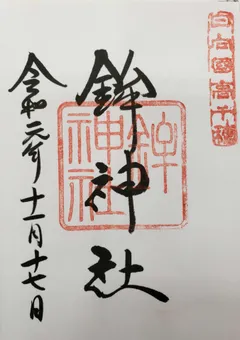 日向國高千穂
鉾神社
鉾神社
令和元年十一月十七日